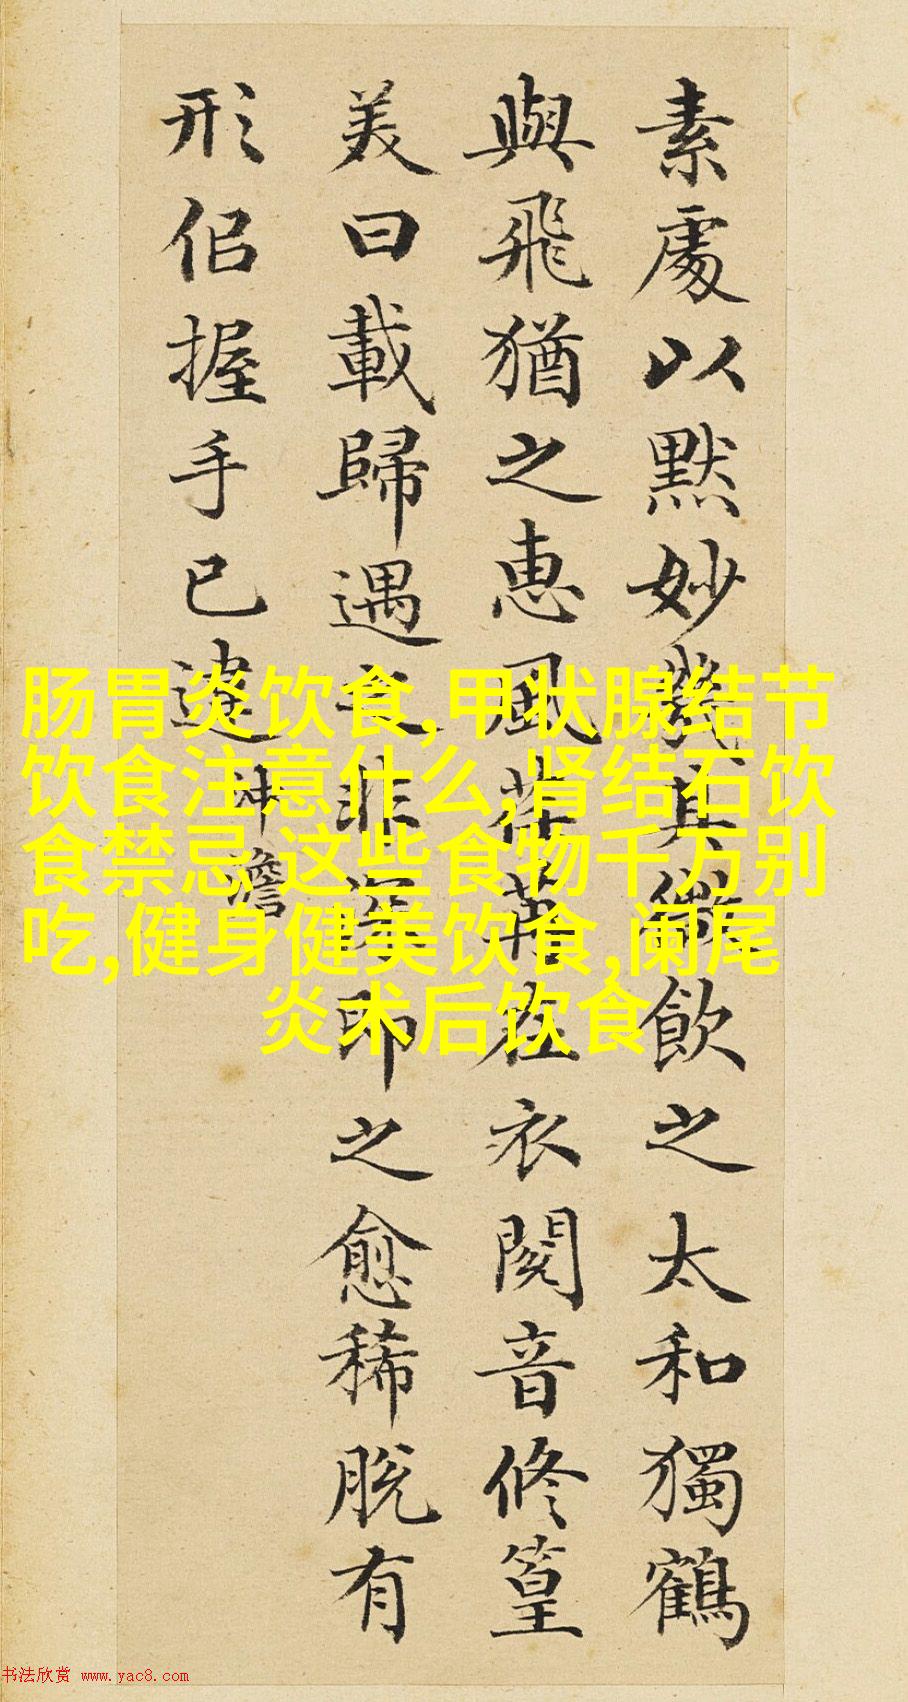 素處以默妙幾其微飲之太和獨鶴
與飛猶之惠風荏苒在衣閱音修篁
美曰載歸遇之匪深即之愈稀脫有
形佀握手已違 沖澹
肠胃炎饮食,甲状腺结节
饮食注意什么,肾结石饮
食禁忌 这些食物千万别
吃,健身健美饮食,阑尾
炎术后饮食
书法欣赏 www.yac8.com